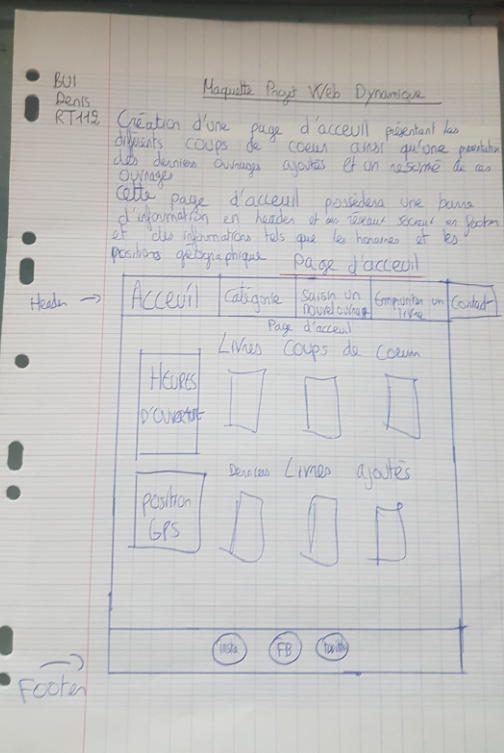 BUI
Denis
RT112
Maquette Projet Web Dynamique
Création d'une page d'acceuil présentant les
différents coups de coeur ainsi qu'une présentation
des derniers ouvrages ajoutés et un resumé de ces
ouvrages
Cette page d'acceuil possèdera une barre
d'information en header et des réseaux sociaux en footer
et des informations tels que les horaires et les
positions géographique
Page d'acceuil
Header →
Acceuil
Catégorie
Saisir un
nouvel ouvrage
Emprunter un
livre
Contact
Page d'acceuil
Livres Coups de Coeur
HEURES
D'OUVERTURE
Derniers Livres ajoutés
Position
GPS
insta
FB
Footer →